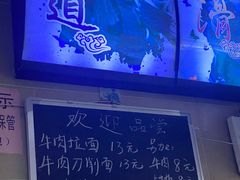 道 清
示
保管
欢迎品尝
牛肉拉面 13元 另加:
牛肉刀削面 13元 牛肉8元